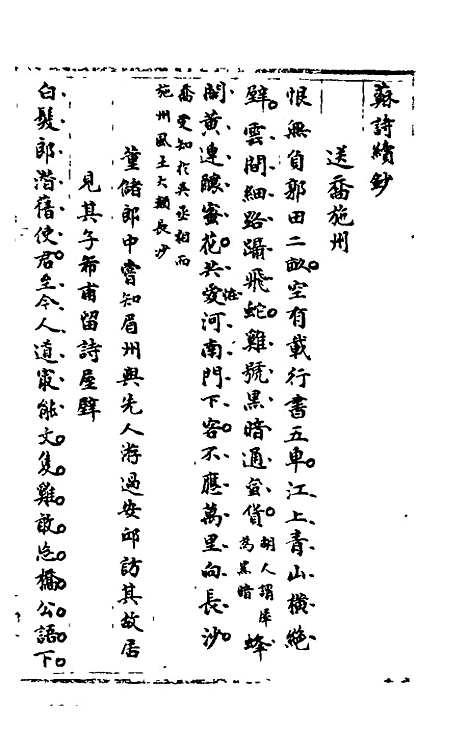 蘇詩續鈔
送喬施州
恨無負郭田二畝空有載行書五車江上青山橫絶
壁雲間細路躡飛蛇雞號黑暗通蠻貨胡人謂犀為黑暗蜂
閙黃連釀蜜花共愛河南門下客不應萬里向長沙
喬受知於吳丞相而
施州風土大類長沙
董儲郎中嘗知眉州與先人游過安邱訪其故居
見其子希甫留詩屋壁
白髮郎潛舊使君至今人道最能文隻雞敢忘橋公語下